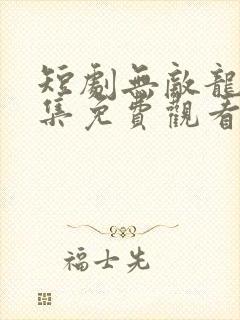 短劇無敵龍
集免費觀看
福士先